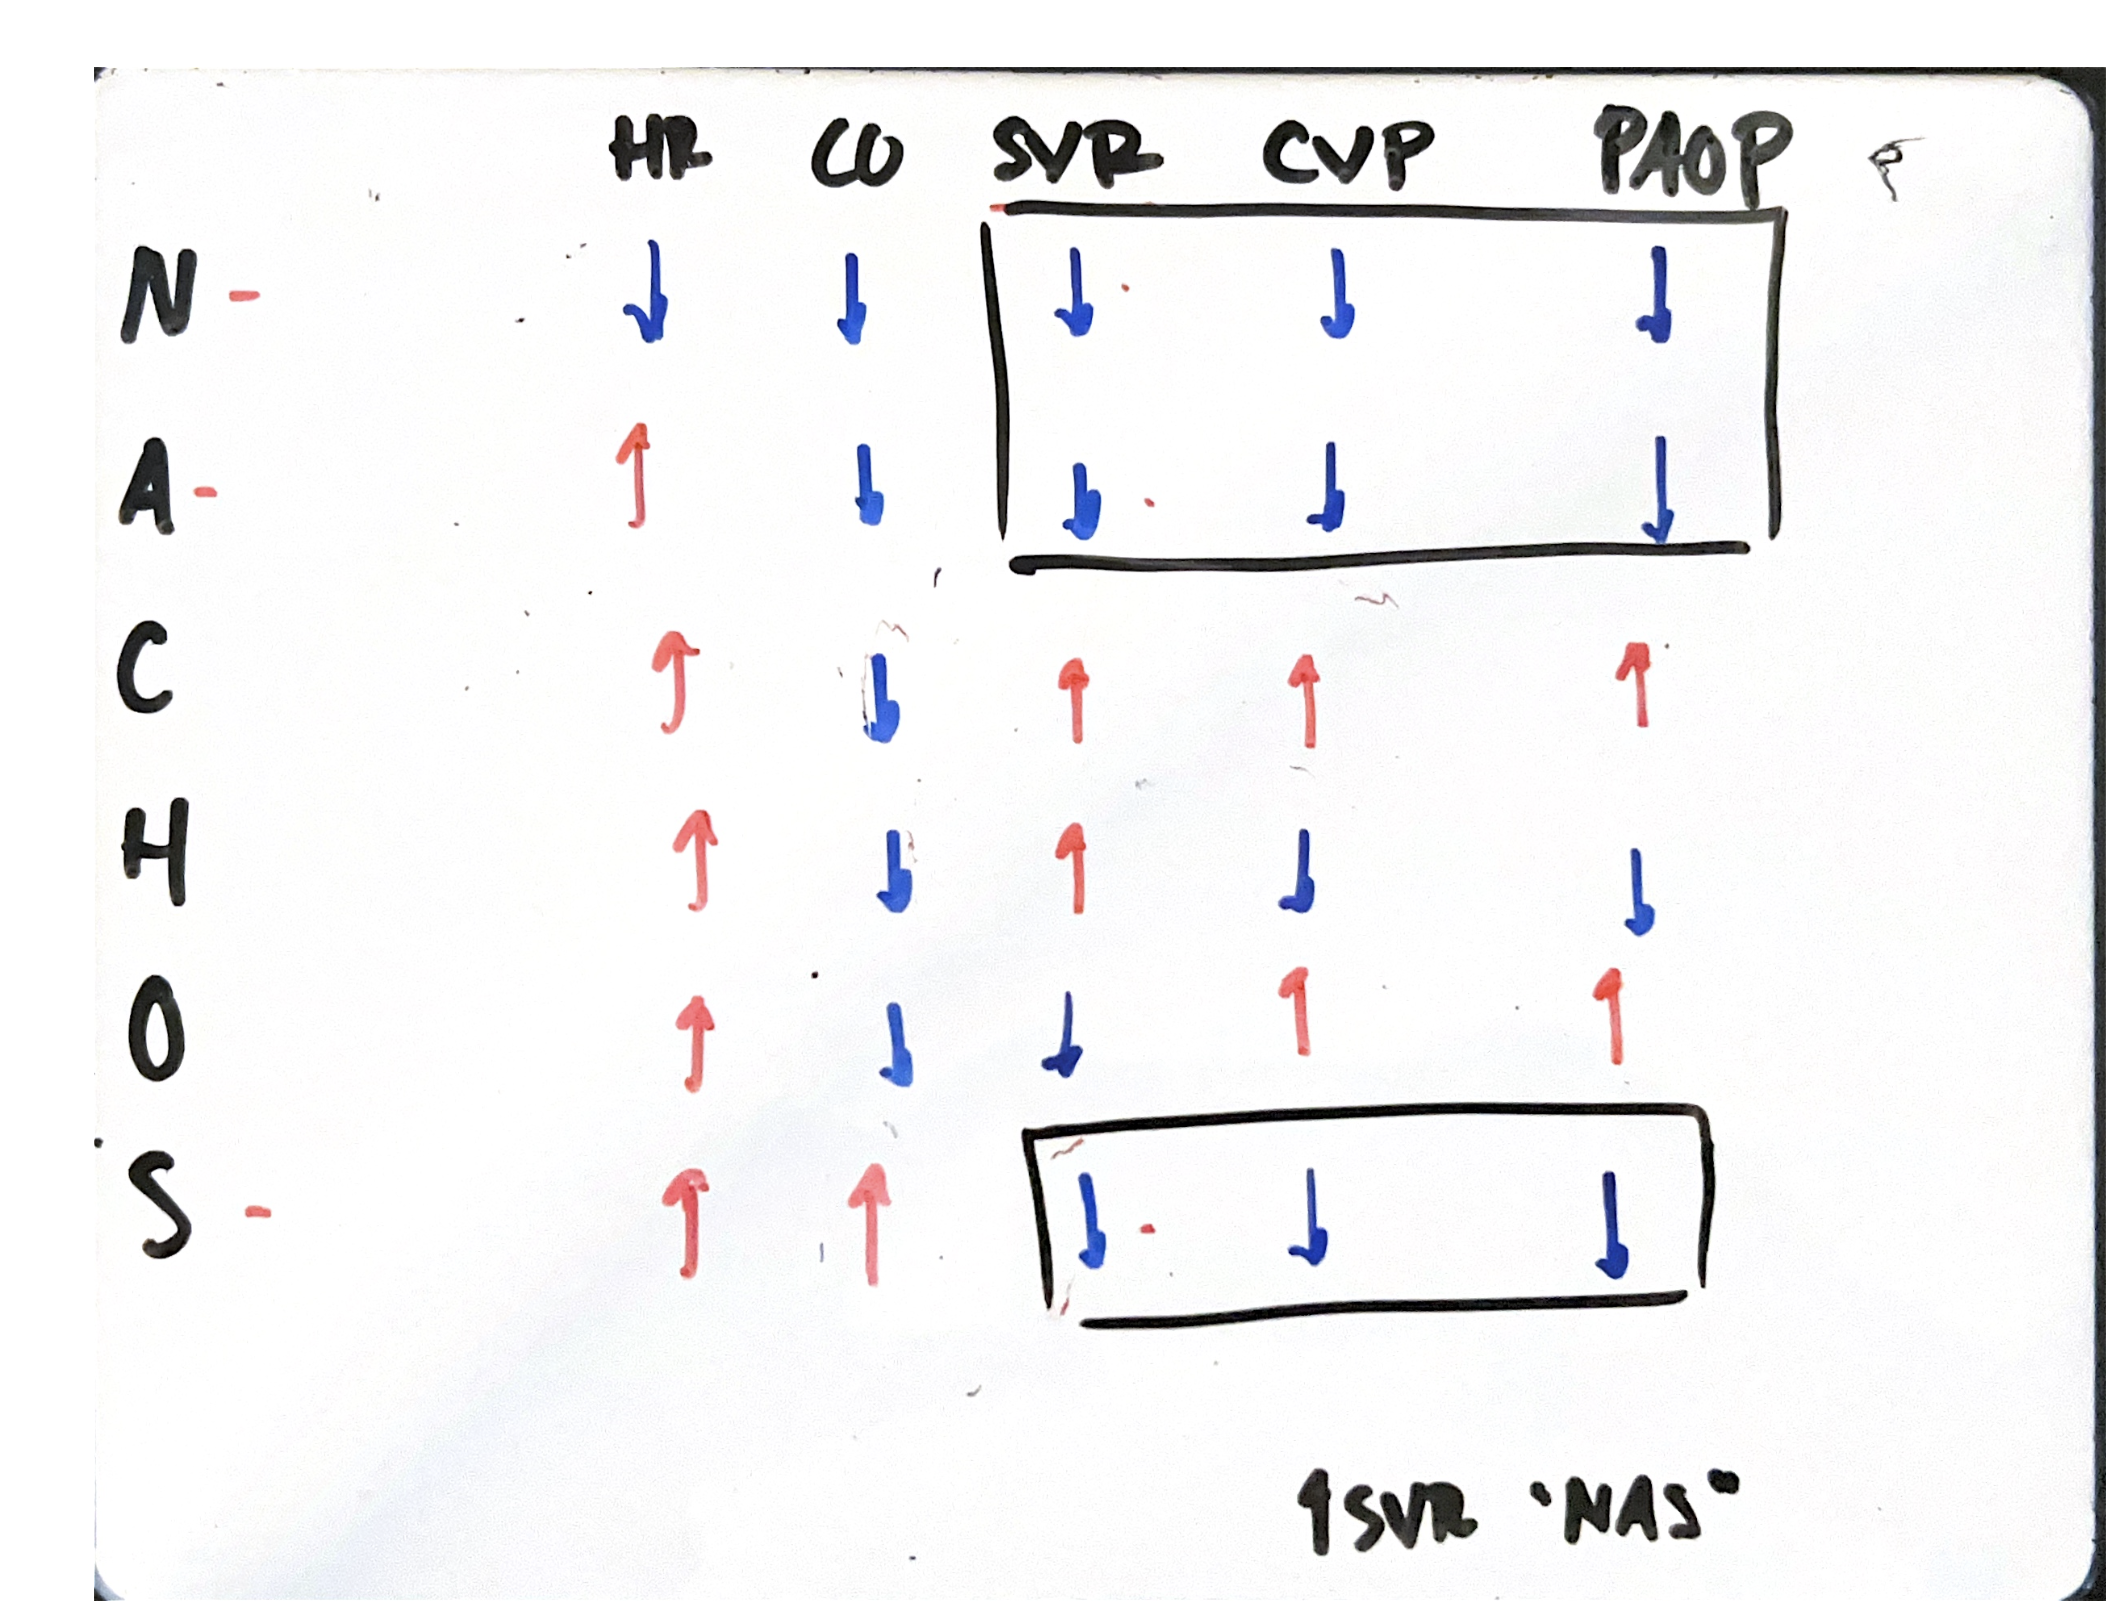 HR CO SVR CVP PAOP
N - ↓ ↓ ↓ ↓ ↓
A - ↑ ↓ ↓ ↓ ↓
C ↑ ↓ ↑ ↑ ↑
H ↑ ↓ ↑ ↓ ↓
O ↑ ↓ ↓ ↑ ↑
S - ↑ ↑ ↓ ↓ ↓
↑SVR "NAS"